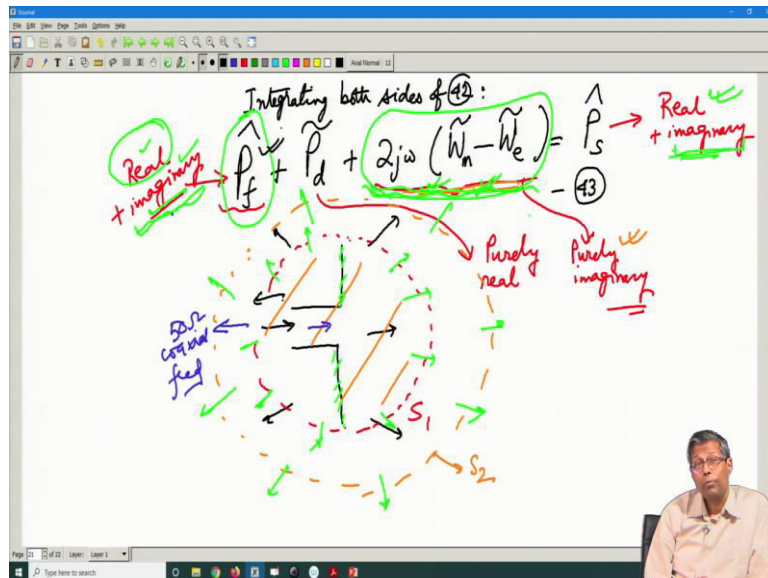 Journal
File Edit View Page Tools Options Help
Arial Normal 12
Integrating both sides of (42):
P̂_f + P̃_d + 2jω (W̃_m − W̃_e) = P̂_s
— (43)
Real
+ imaginary
Real
+ imaginary
Purely
real
Purely
imaginary
50Ω
coaxial
feed
S₁
S₂
Page 21 of 22 Layer: Layer 1
Type here to search